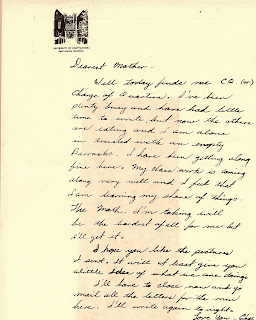 UNIVERSITY OF CHATTANOOGA
CHATTANOOGA, TENNESSEE
Dearest Mother -
Well today finds me C.Q. (or)
Charge of Quarters. I've been
plenty busy and have had little
time to write but now the others
are eating and I am alone
in
Barracks. I have been getting along
fine here. My class work is coming
along very well and I feel that
I am learning my share of things.
The Math. I'm taking will
be the hardest of all for me but
I'll get it.
I hope you like the pictures
I send. It will at least give you
a little idea of what we are doing.
I'll have to close now and go
mail all the letters for the men
here. I'll write again tonight.
Love You - Chas